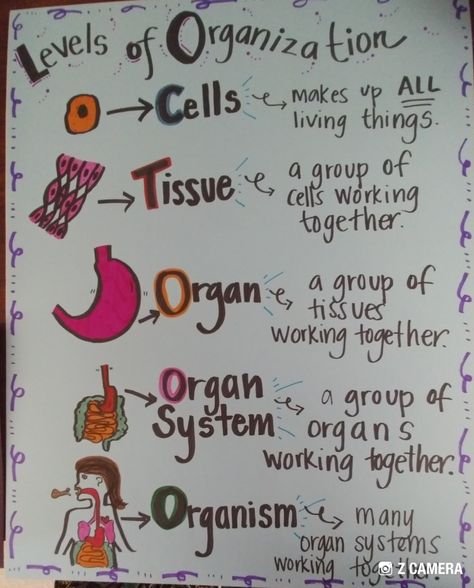 Levels of Organization
Cells
makes up ALL
living things.
Tissue
a group of
cells working
together.
Organ
a group of
tissues
working together.
Organ
System
a group of
organs
working together.
Organism
many
organ systems
working together
Z CAMERA